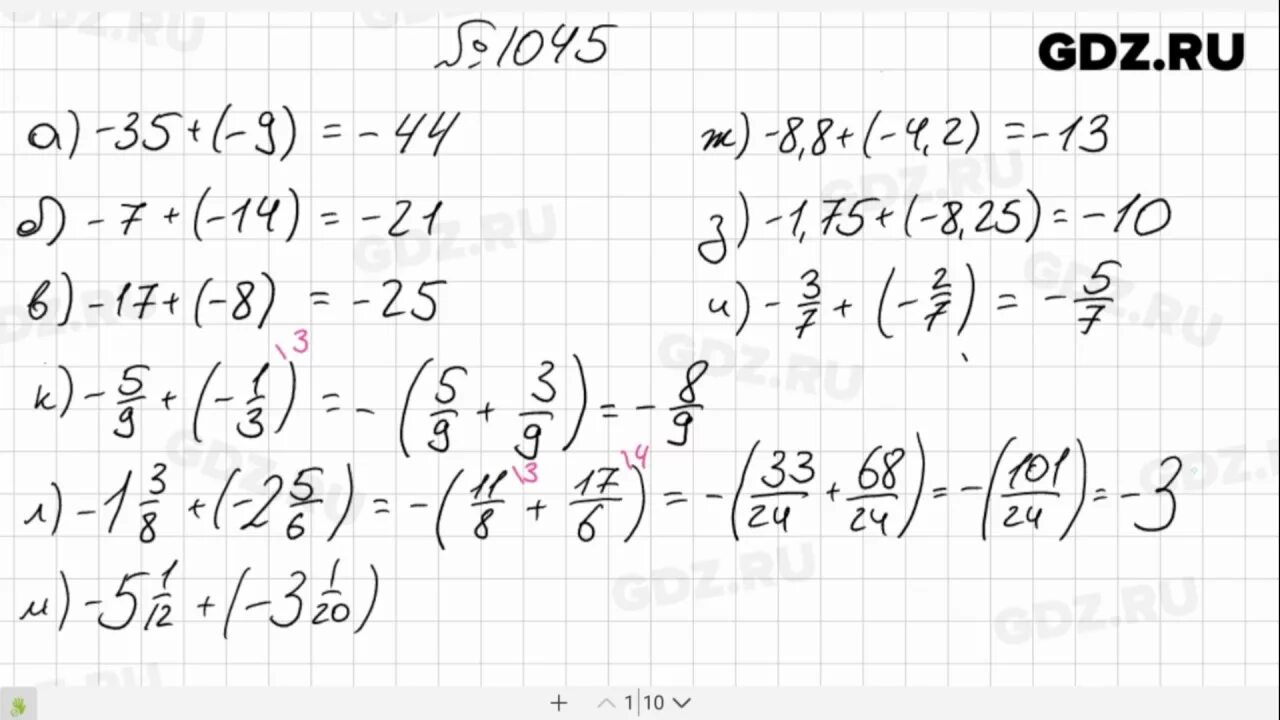 №1045
GDZ.RU
а) -35+(-9) = -44
ж) -8,8+(-4,2) = -13
б) -7+(-14) = -21
з) -1,75+(-8,25) = -10
в) -17+(-8) = -25
и) -3/7 + (-2/7) = -5/7
к) -5/9 + (-1/3\3) = -(5/9 + 3/9) = -8/9
л) -1 3/8 + (-2 5/6) = -(11/8\3 + 17/6\4) = -(33/24 + 68/24) = -(101/24) = -3
м) -5 1/12 + (-3 1/20)
+ 1|10